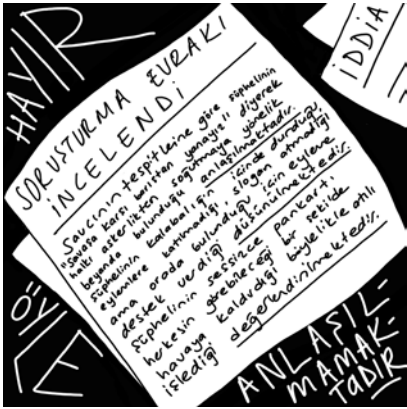 HAYIR
İDDİA
SORUŞTURMA EVRAKI
İNCELENDİ
Savcının tespitlerine göre şüphelinin
"Savaşa karşı barıştan yanayız" diyerek
halkı askerlikten soğutmaya yönelik
beyanda bulunduğu anlaşılmaktadır.
Şüphelinin kalabalığın içinde durduğu,
eylemlere katılmadığı, slogan atmadığı
ama orada bulunduğu için eyleme
destek verdiği düşünülmektedir.
Şüphelinin sessizce pankartı
herkesin görebileceği bir şekilde
havaya kaldırdığı böylelikle atılı
işlediği değerlendirilmektedir.
ÖYLE
ANLAŞIL-
MAMAK-
TADIR